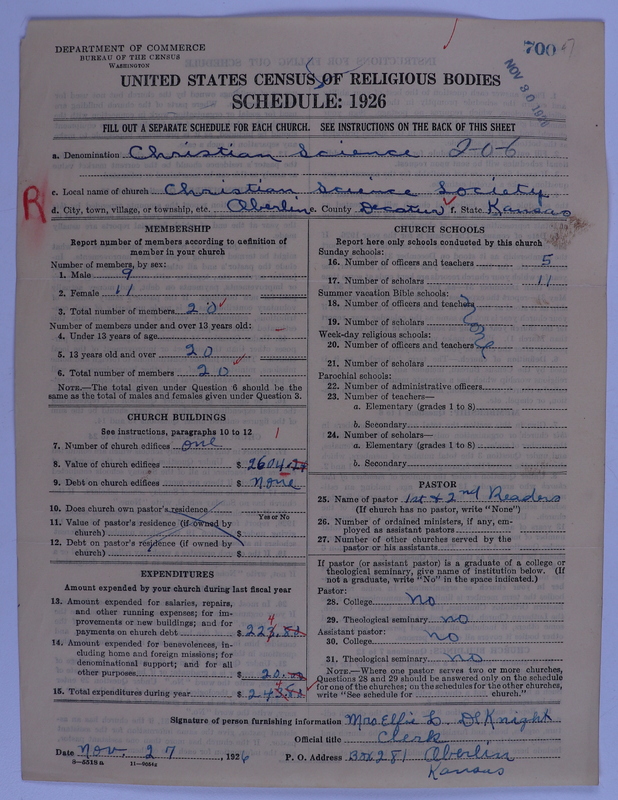 DEPARTMENT OF COMMERCE
BUREAU OF THE CENSUS
WASHINGTON
700
NOV 30 1926
UNITED STATES CENSUS OF RELIGIOUS BODIES
SCHEDULE: 1926
FILL OUT A SEPARATE SCHEDULE FOR EACH CHURCH. SEE INSTRUCTIONS ON THE BACK OF THIS SHEET
a. Denomination Christian Science 206
c. Local name of church Christian Science Society
R
d. City, town, village, or township, etc. Oberlin e. County Decatur f. State Kansas
MEMBERSHIP
Report number of members according to definition of
member in your church
Number of members, by sex:
1. Male 9
2. Female 11
3. Total number of members 20
Number of members under and over 13 years old:
4. Under 13 years of age
5. 13 years old and over 20
6. Total number of members 20
NOTE.—The total given under Question 6 should be the
same as the total of males and females given under Question 3.
CHURCH BUILDINGS
See instructions, paragraphs 10 to 12
7. Number of church edifices one 1
8. Value of church edifices $ 2604
9. Debt on church edifices $ None
10. Does church own pastor's residence
Yes or No
11. Value of pastor's residence (if owned by
church) $
12. Debt on pastor's residence (if owned by
church) $
EXPENDITURES
Amount expended by your church during last fiscal year
13. Amount expended for salaries, repairs,
and other running expenses; for im-
provements or new buildings; and for
payments on church debt $ 223.82
14. Amount expended for benevolences, in-
cluding home and foreign missions; for
denominational support; and for all
other purposes $ 20.
15. Total expenditures during year $ 243.82
CHURCH SCHOOLS
Report here only schools conducted by this church
Sunday schools:
16. Number of officers and teachers 5
17. Number of scholars 11
Summer vacation Bible schools:
18. Number of officers and teachers
19. Number of scholars
none
Week-day religious schools:
20. Number of officers and teachers
21. Number of scholars
Parochial schools:
22. Number of administrative officers
23. Number of teachers—
a. Elementary (grades 1 to 8)
b. Secondary
24. Number of scholars—
a. Elementary (grades 1 to 8)
b. Secondary
PASTOR
25. Name of pastor 1st & 2nd Readers
(If church has no pastor, write "None")
26. Number of ordained ministers, if any, em-
ployed as assistant pastors
27. Number of other churches served by the
pastor or his assistants
If pastor (or assistant pastor) is a graduate of a college or
theological seminary, give name of institution below. (If
not a graduate, write "No" in the space indicated.)
Pastor:
28. College no
29. Theological seminary no
Assistant pastor:
30. College no
31. Theological seminary no
NOTE.—Where one pastor serves two or more churches,
Questions 28 and 29 should be answered only on the schedule
for one of the churches; on the schedules for the other churches,
write "See schedule for church."
Signature of person furnishing information Mrs Effie L. DeKnight
Official title Clerk
Date Nov. 27, 1926 P. O. Address Box 281 Oberlin
Kansas
8—5518 a 11—9054a